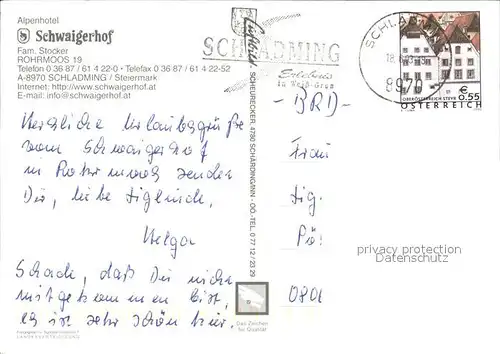 Alpenhotel
Schwaigerhof
Fam. Stocker
ROHRMOOS 19
Telefon 0 36 87 / 61 4 22-0 • Telefax 0 36 87 / 61 4 22-52
A-8970 SCHLADMING / Steiermark
Internet: http://www.schwaigerhof.at
E-mail: info@schwaigerhof.at
Herzliche Urlaubsgrüße
vom Schwaigerhof
in Rohrmoos senden
Dir, liebe
Helga
Schade, daß Du nicht
mitgekommen bist,
es ist sehr schön hier.
Luftbild
SCHEDRECKER, 4780 SCHÄRDING/INN - OÖ - TEL. 0 77 12 / 23 29
Das Zeichen
für Qualität
SCHLADMING
Erlebnis
in Weiß-Grün
SCHLADMING
8970
€ 0,55
OBERÖSTERREICH STEYR
ÖSTERREICH
- BRD -
Frau
Sig.
Pö
privacy protection
Datenschutz